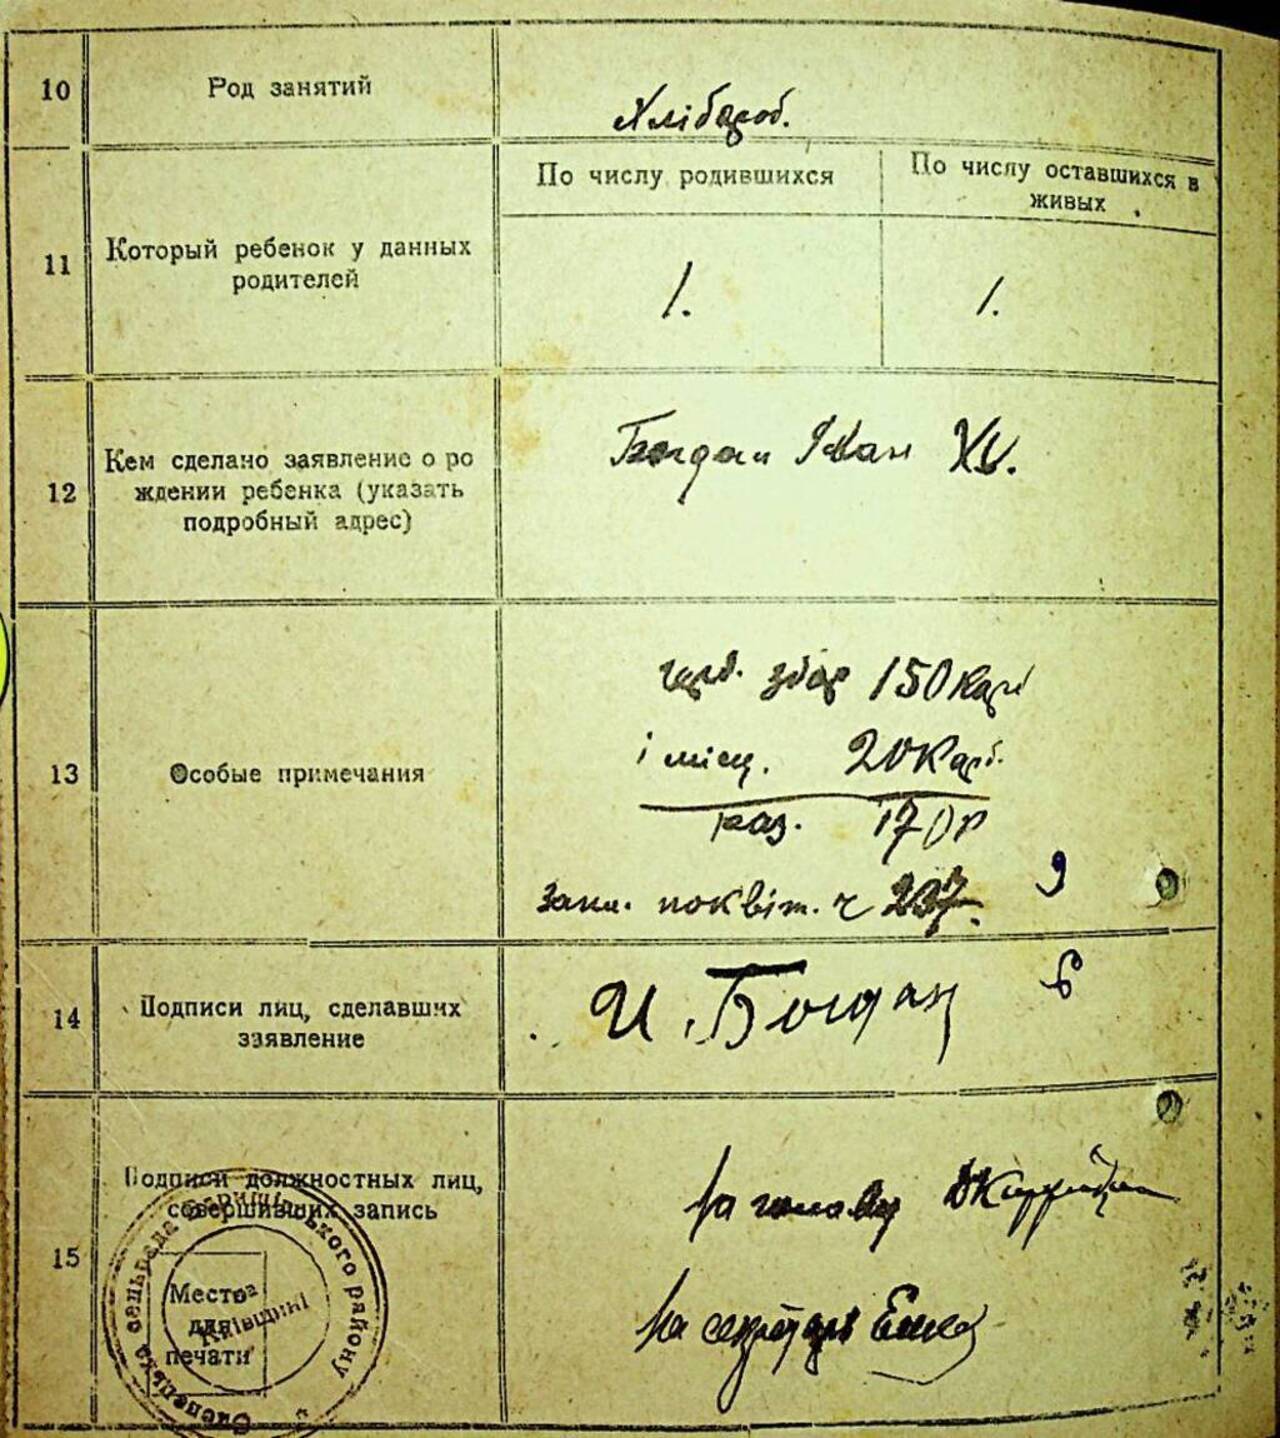 10 Род занятий Хлібороб.
По числу родившихся По числу оставшихся в
живых
11 Который ребенок у данных
родителей 1. 1.
12 Кем сделано заявление о ро
ждении ребенка (указать
подробный адрес) Богдан Іван
13 Особые примечания
збор 150 карб
і місц. 20 карб.
раз. 170 р
запл. по квіт. ч 237. 9
14 Подписи лиц, сделавших
заявление И. Богдан
15 Подписи должностных лиц,
совершивших запись
За голову
За секретаря
Место
для
печати
сельрада Баришівського району
Київщині